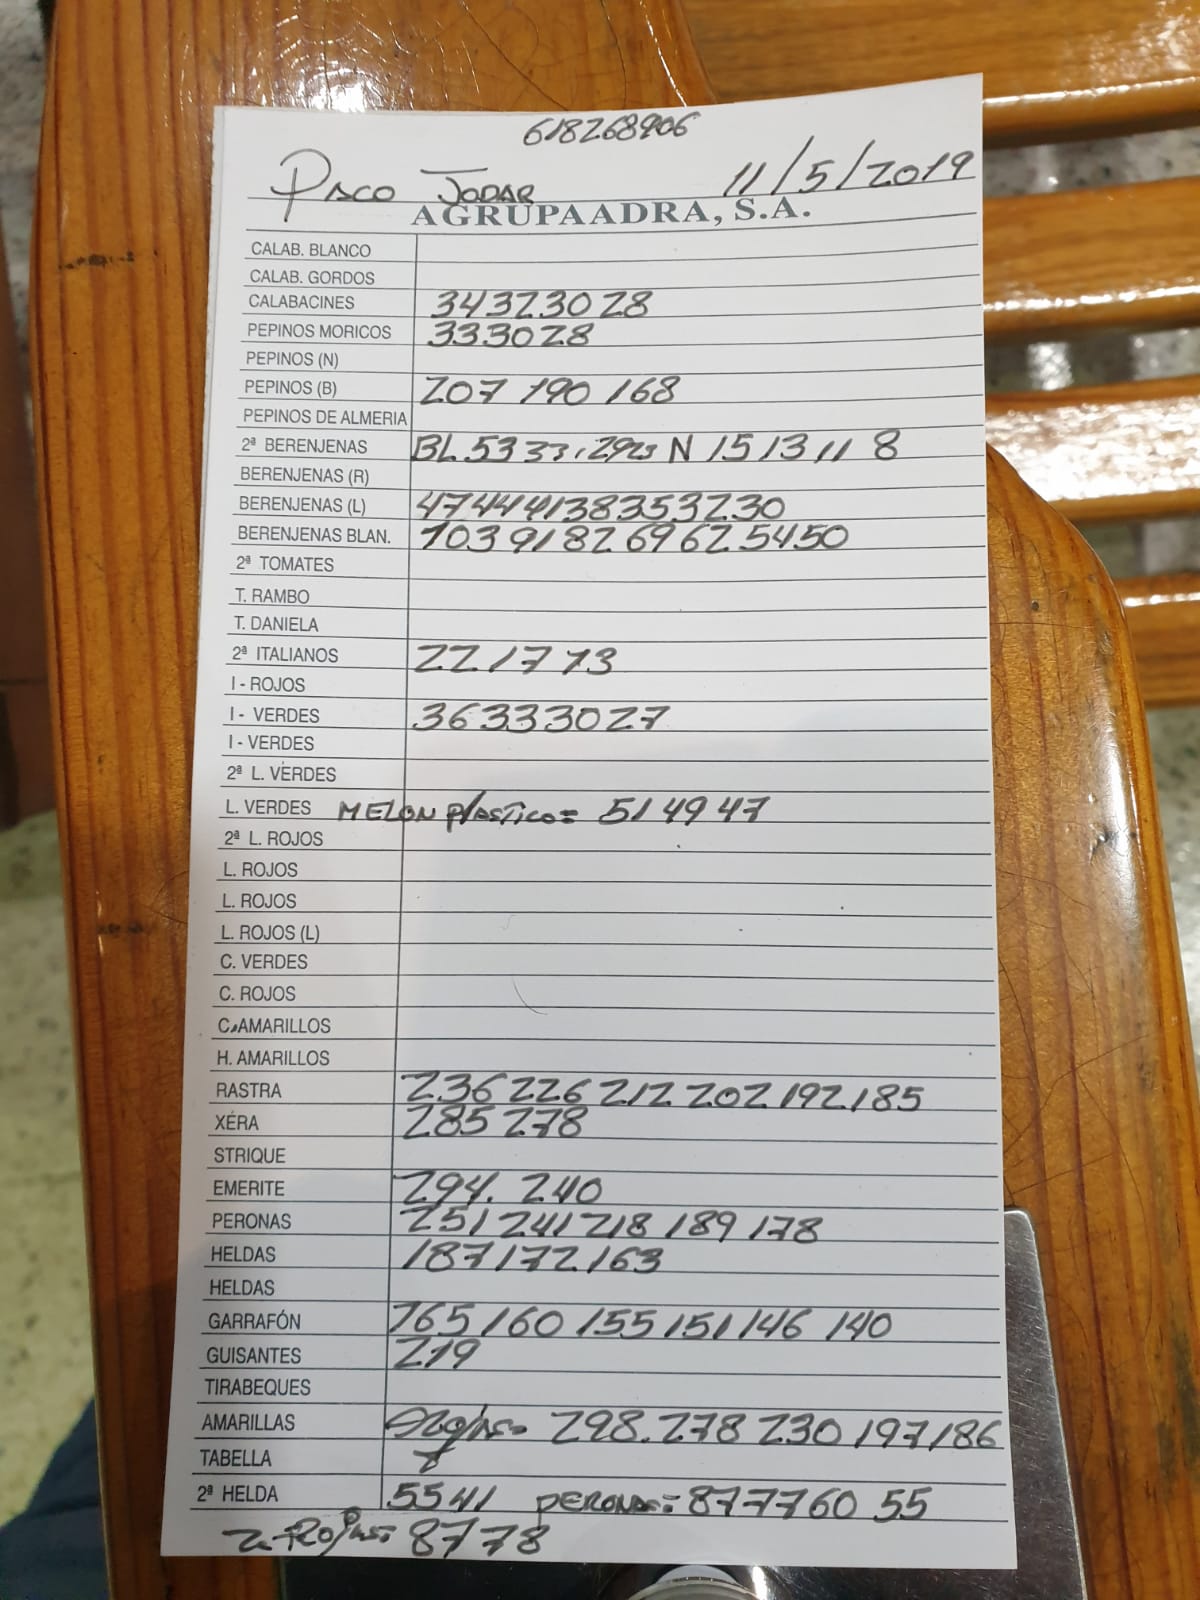 618268906
PACO JODAR 11/5/2019
AGRUPAADRA, S.A.
CALAB. BLANCO
CALAB. GORDOS
CALABACINES 34323028
PEPINOS MORICOS 333028
PEPINOS (N)
PEPINOS (B) 207 190 168
PEPINOS DE ALMERIA
2ª BERENJENAS BL 53 33, 2923 N 15 13 11 8
BERENJENAS (R)
BERENJENAS (L) 474441383532 30
BERENJENAS BLAN. 103 91 82 69 62 54 50
2ª TOMATES
T. RAMBO
T. DANIELA
2ª ITALIANOS 22 17 13
I - ROJOS
I - VERDES 36333027
I - VERDES
2ª L. VERDES
L. VERDES MELON PlASTICO= 51 49 47
2ª L. ROJOS
L. ROJOS
L. ROJOS
L. ROJOS (L)
C. VERDES
C. ROJOS
C. AMARILLOS
H. AMARILLOS
RASTRA 236 226 212 202 192 185
XÉRA 285 278
STRIQUE
EMERITE 294. 240
PERONAS 251 241 218 189 178
HELDAS 187 172 163
HELDAS
GARRAFÓN 165 160 155 151 146 140
GUISANTES 219
TIRABEQUES
AMARILLAS 298. 278 230 197 186
TABELLA
2ª HELDA 5541 PERONAS= 877760 55
2-ROjAS= 8778